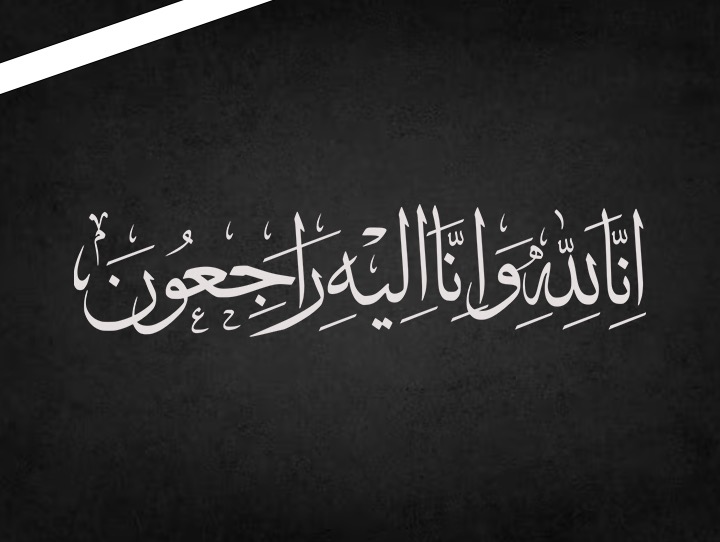 اِنَّا لِلّٰهِ وَاِنَّا اِلَيْهِ رَاجِعُونَ